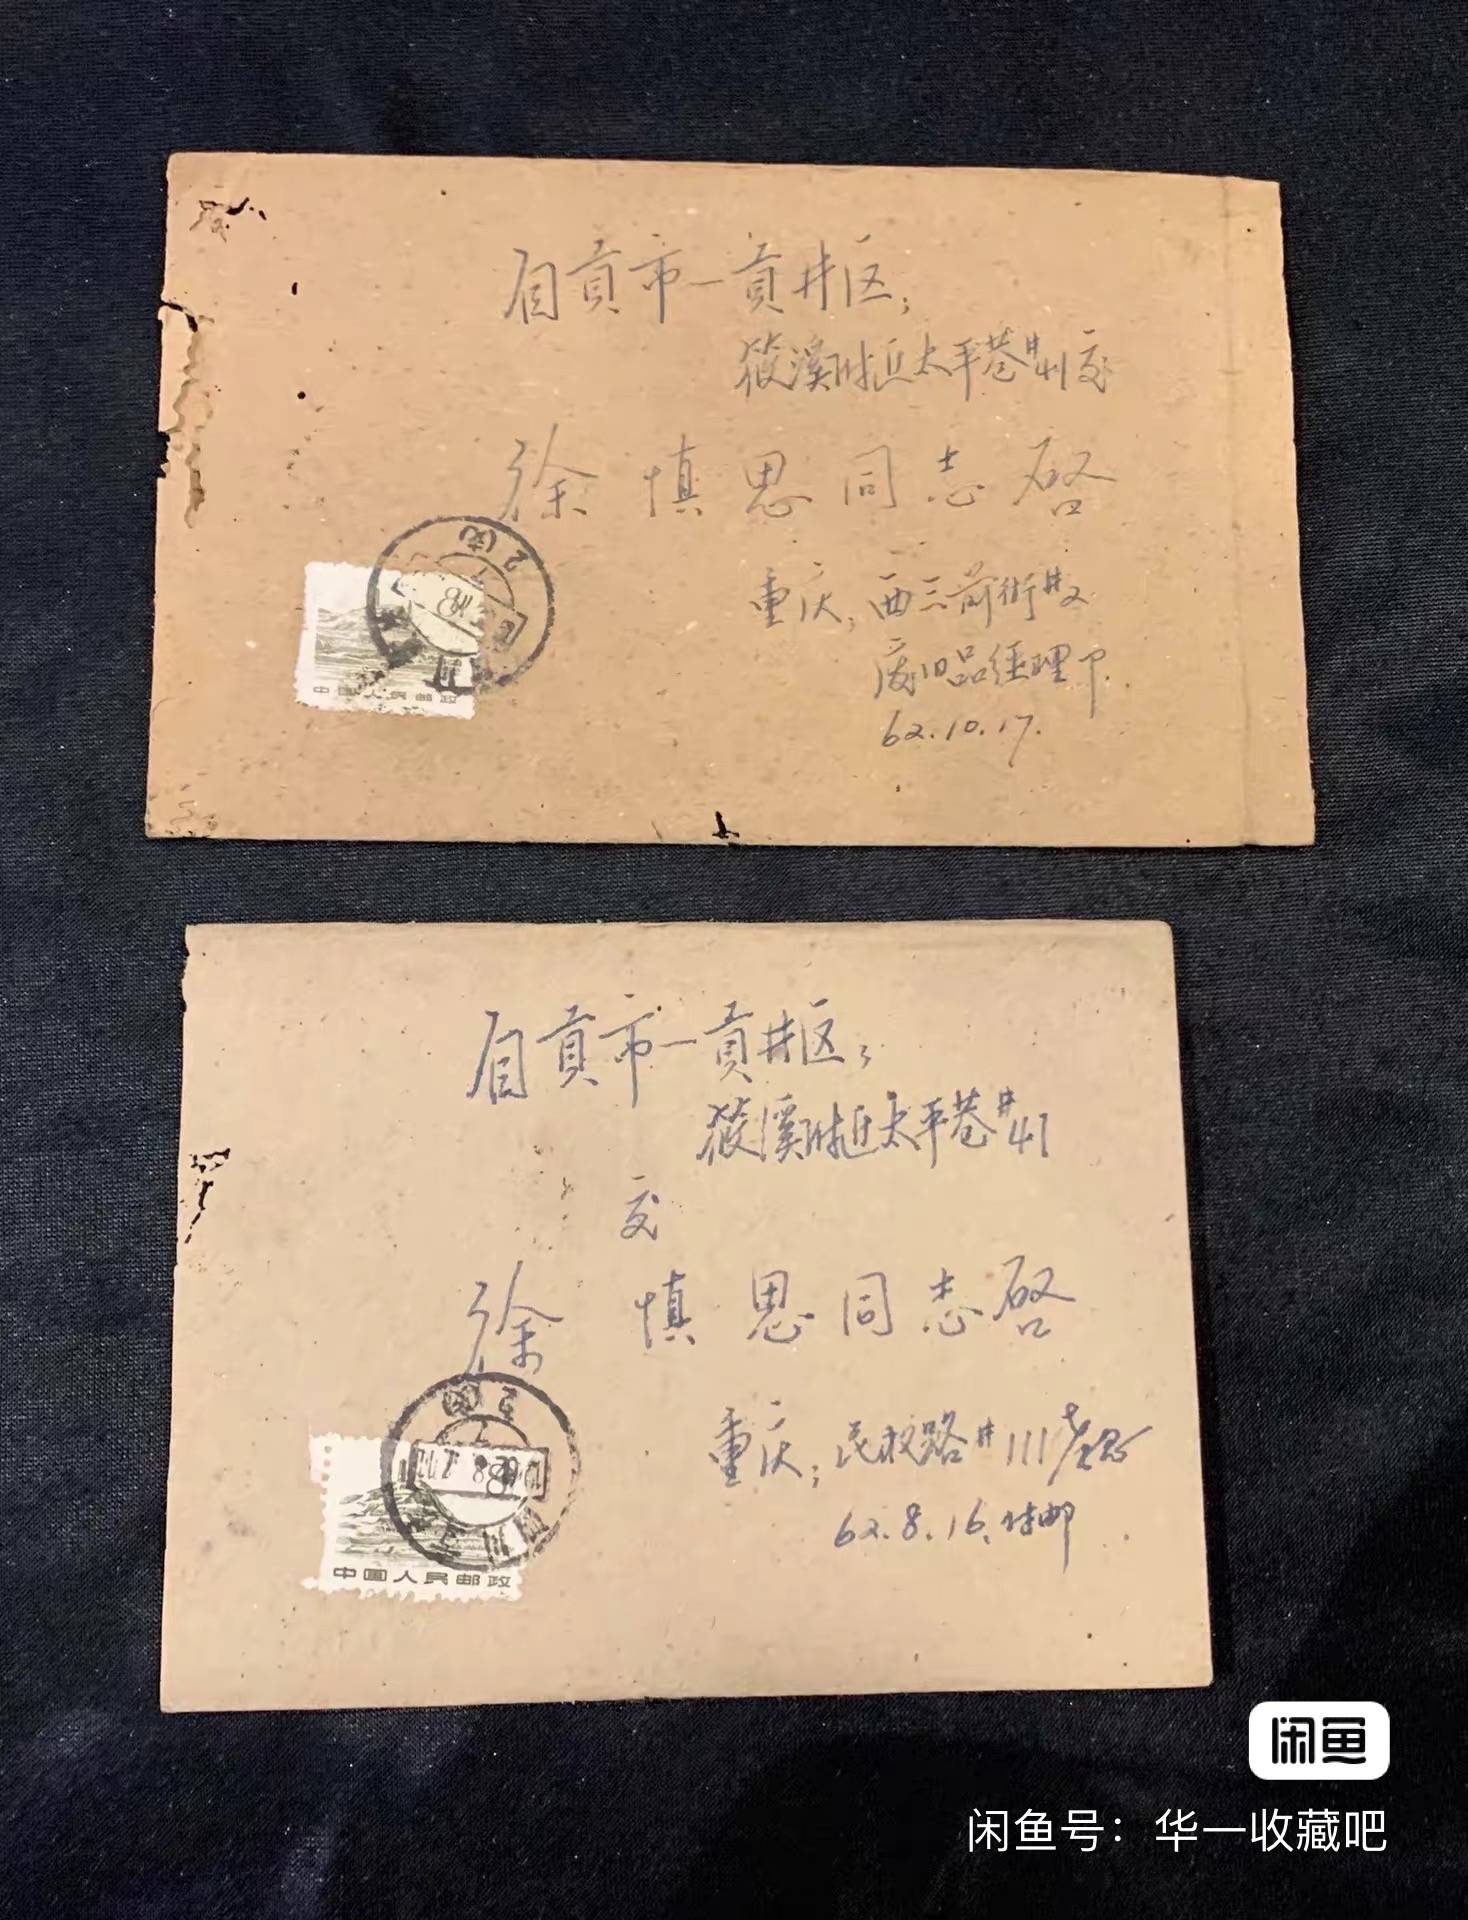 自贡市一贡井区;
筱溪附近太平巷#41交
徐慎思同志启
重庆,西三前街#2
废旧品经理
62.10.17.
2(支)
中国人民邮政
自贡市一贡井区;
筱溪附近太平巷#41
交
徐慎思同志启
重庆;民权路#111
62.8.16.付邮
中国人民邮政
闲鱼
闲鱼号：华一收藏吧